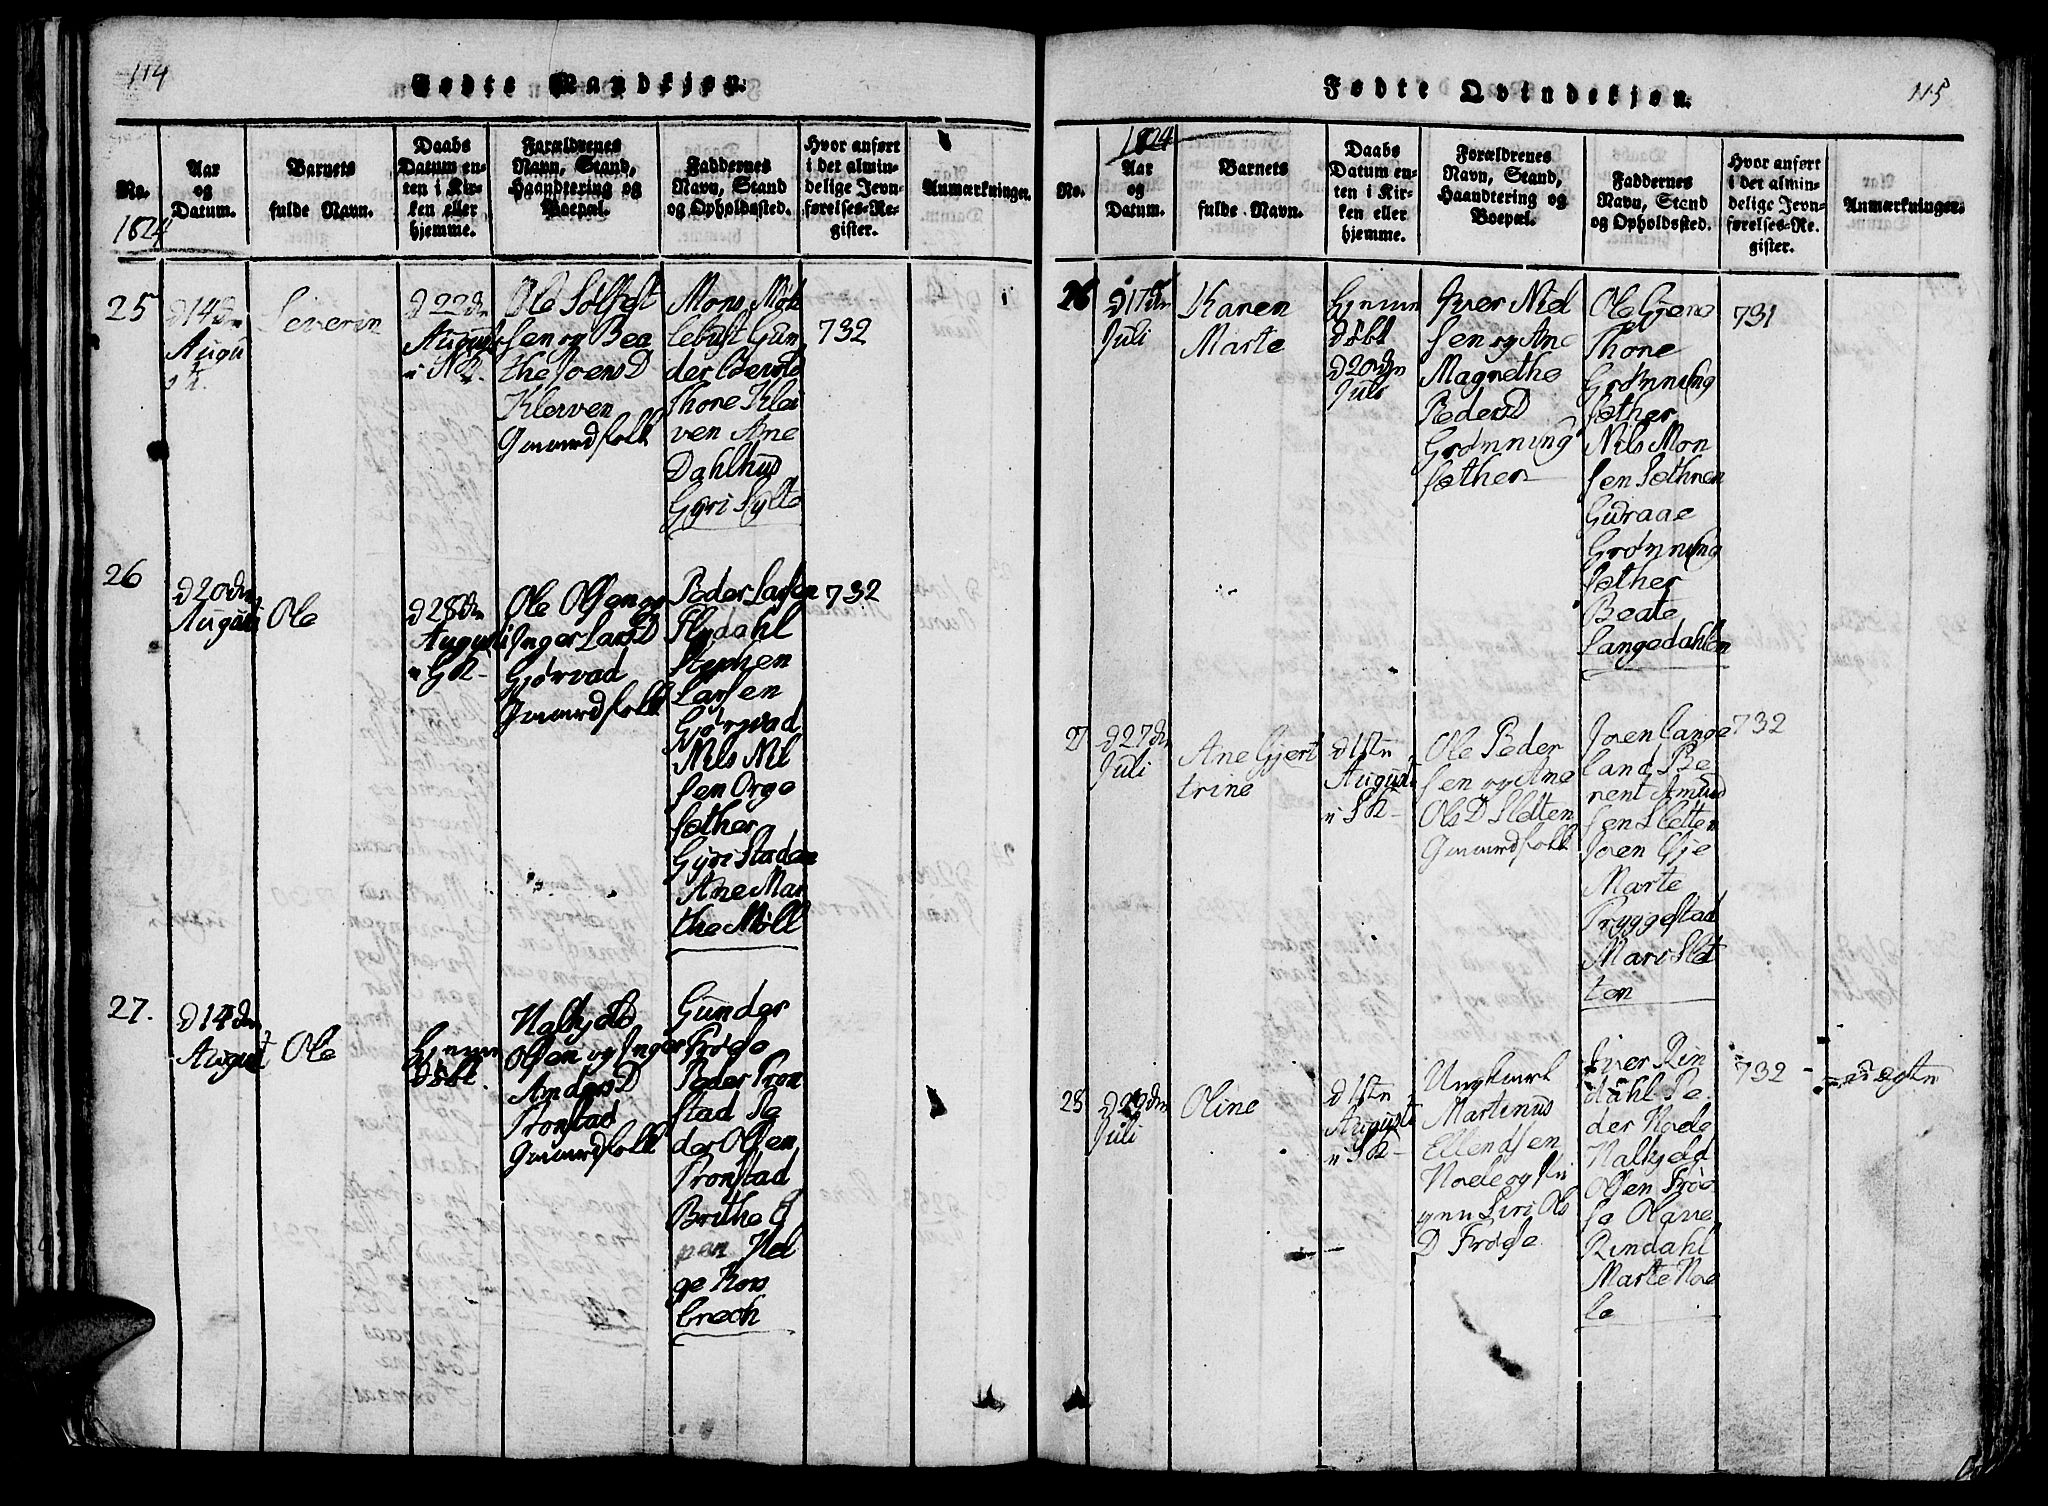 114
Fødte Mandkjøn.
No.
Aar og Datum.
Barnets fulde Navn.
Daabs Datum enten i Kirken eller hjemme.
Forældrenes Navn, Stand, Haandtering og Boepæl.
Faddernes Navn, Stand og Opholdssted.
Hvor anført i det almindelige Jevnførelses-Register.
Anmærkninger.
1824
25
d 14dn
Augu
st.
Severin
d 22dn
August
Ole Solfest
sen og Bea
the Joens D
Kleiven
Gaardfolk
Mons
lebust Gun
der
Thore Klei
ven Ane
Dahlhus
Gyri Sylte
732
26
d 20dn
August
Ole
d 28dn
Augusti
Ole Olsen og
Inger Lars D
Gjørvad
Gaardfolk
Peder Larsen
Flydahl
Stephen
Larsen
Gjørvad
Nils Nil
sen Orge
sæther
Gyri Staden
Ane Mar
the Møll
732
27.
d 14dn
August
Ole
Hjemme
døbt.
Halkjeld
Olsen og Inger
Anders D
Tronstad
Gaardfolk
Gunder
Frøse
Peder Tron
stad
der Olsen
Tronstad
Brithe
Hel
ge
brech
115
Fødte Qvindekjøn.
1824
No.
Aar og Datum.
Barnets fulde Navn.
Daabs Datum enten i Kirken eller hjemme.
Forældrenes Navn, Stand, Haandtering og Boepæl.
Faddernes Navn, Stand og Opholdssted.
Hvor anført i det almindelige Jevnførelses-Register.
Anmærkninger.
26
d 17dn
Juli
Karen
Marte
Hjemme
døbt
d 20dn
Juli
Iver Niel
sen og Ane
Magrethe
Peders D
Grønning
sæther
Ole Gjære
Thore
Grønning
sæther
Nils Mon
sen Sæthren
Guraae
Grønning
sæther
Beate
Langedahlen
731
27
d 27dn
Juli
Ane Gjert
trine
d 1stn
August
Ole Peder
sen og Ane
Ols D Sletten
Gaardfolk
Joen Lange
land Be
rent Amund
sen Sletten
Joen Øje
Marte
Tryggestad
Mari Slet
ten
732
28
d 29dn
Juli
Oline
d 1stn
Augusti
Ungkarl
Martinus
Ellendsen
Siri Ols
D Frøse
Iver Rin
dahl Pe
der
Halkjeld
Olsen Frøi
se Olave
Rindahl
Marte
732
uægtn